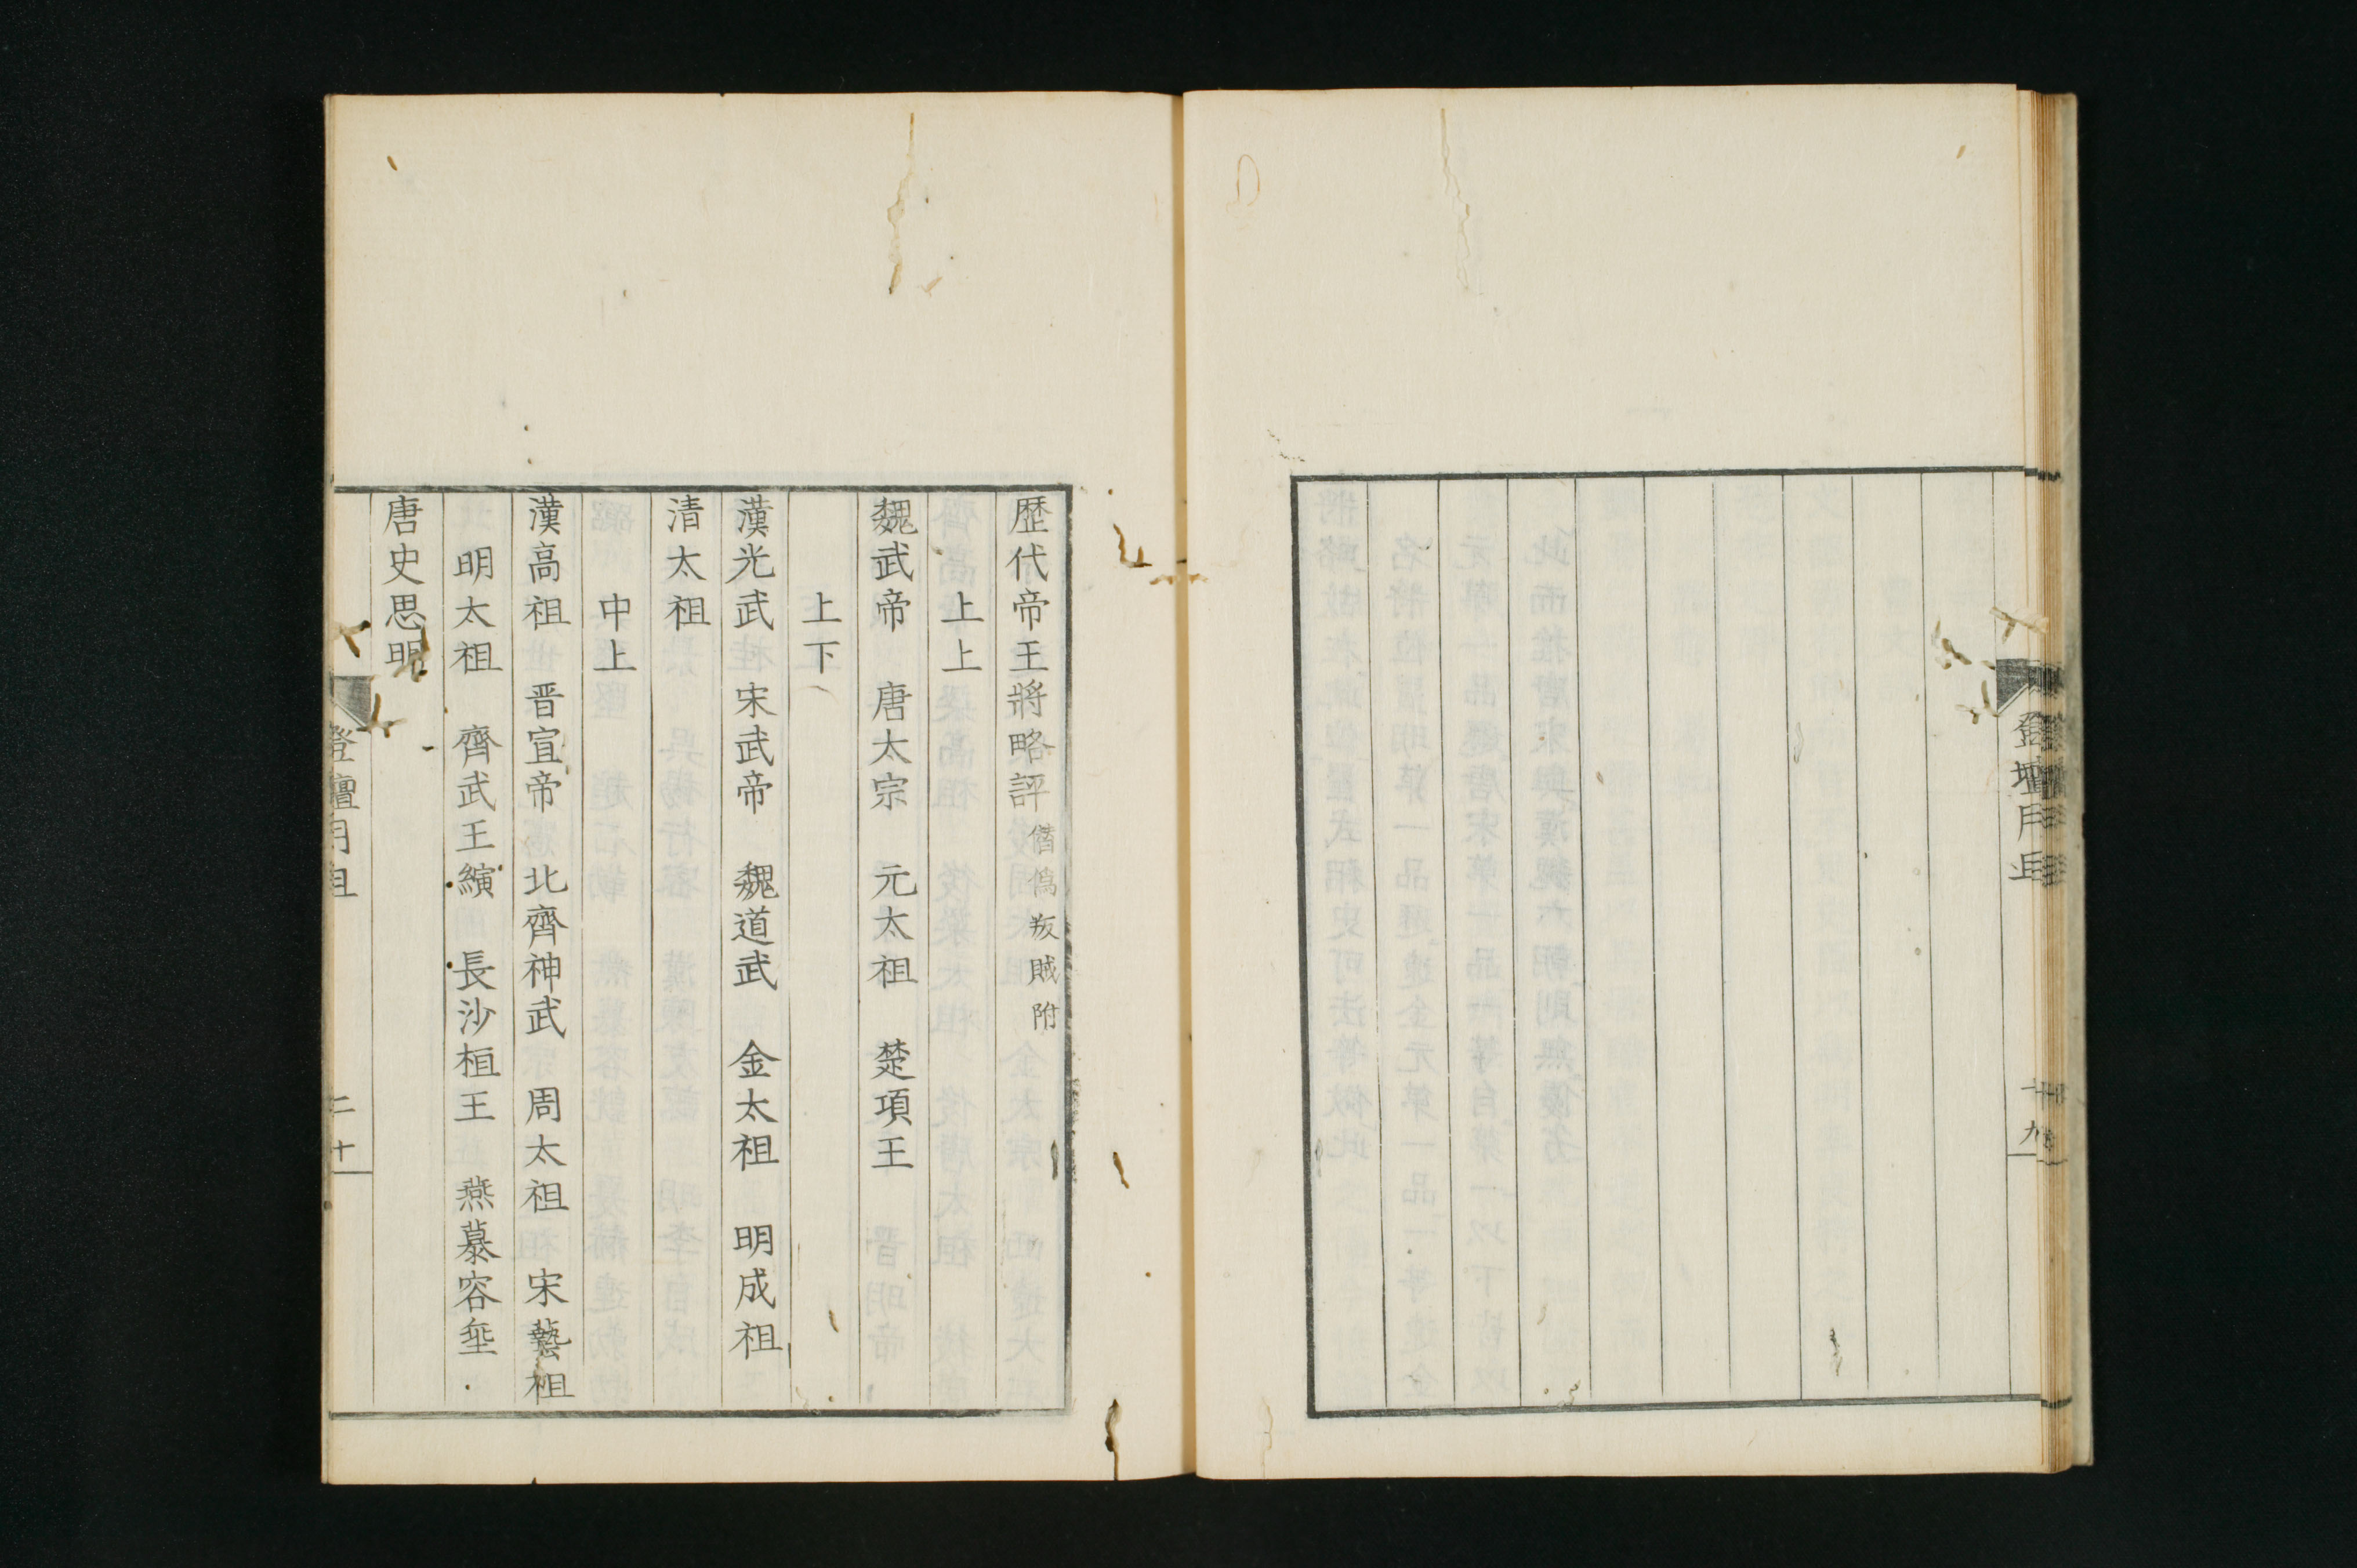 歷代帝王將略評 僭僞叛賊附
上上
魏武帝 唐太宗 元太祖 楚項王
上下
漢光武 宋武帝 魏道武 金太祖 明成祖
清太祖
中上
漢高祖 晋宣帝 北齊神武 周太祖 宋藝祖
明太祖 齊武王縯 長沙桓王 燕慕容垂
唐史思明
二十